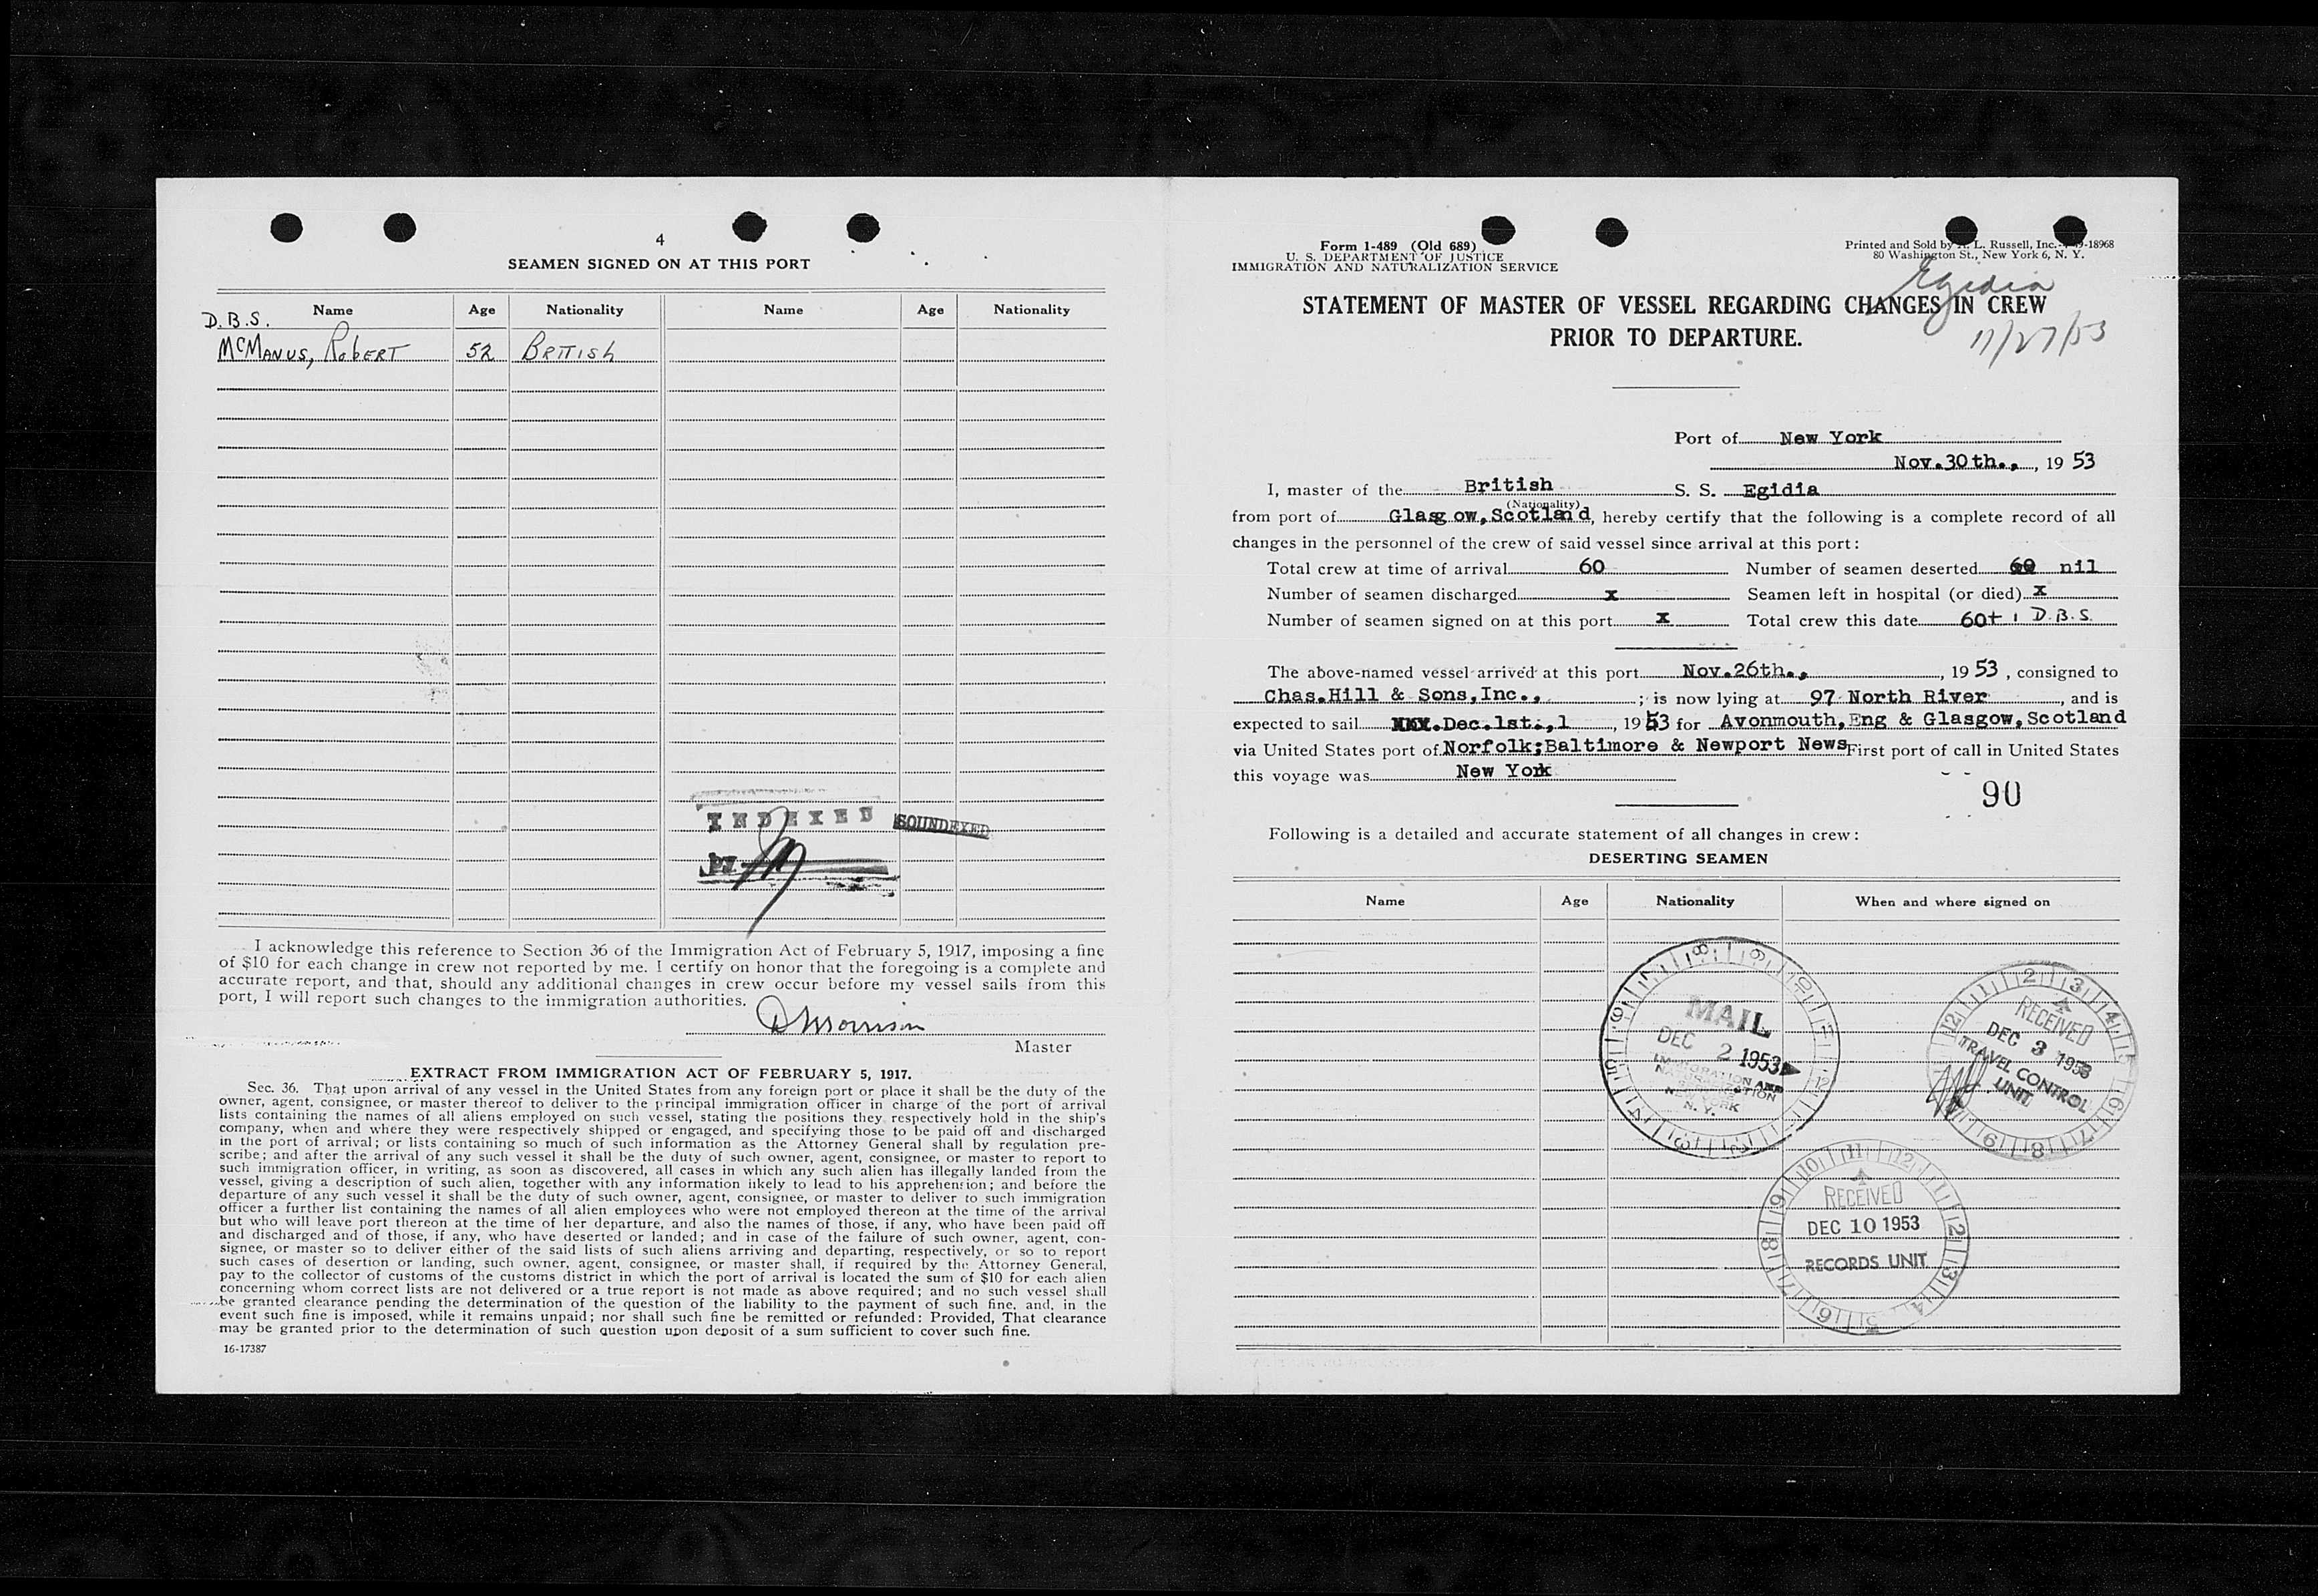 4
SEAMEN SIGNED ON AT THIS PORT
Name Age Nationality Name Age Nationality
D.B.S.
McManus, Robert 52 British
INDEXED SOUNDEXED
BY
I acknowledge this reference to Section 36 of the Immigration Act of February 5, 1917, imposing a fine
of $10 for each change in crew not reported by me. I certify on honor that the foregoing is a complete and
accurate report, and that, should any additional changes in crew occur before my vessel sails from this
port, I will report such changes to the immigration authorities.
D Morrison
Master
EXTRACT FROM IMMIGRATION ACT OF FEBRUARY 5, 1917.
Sec. 36. That upon arrival of any vessel in the United States from any foreign port or place it shall be the duty of the
owner, agent, consignee, or master thereof to deliver to the principal immigration officer in charge of the port of arrival
lists containing the names of all aliens employed on such vessel, stating the positions they respectively hold in the ship's
company, when and where they were respectively shipped or engaged, and specifying those to be paid off and discharged
in the port of arrival; or lists containing so much of such information as the Attorney General shall by regulation pre-
scribe; and after the arrival of any such vessel it shall be the duty of such owner, agent, consignee, or master to report to
such immigration officer, in writing, as soon as discovered, all cases in which any such alien has illegally landed from the
vessel, giving a description of such alien, together with any information likely to lead to his apprehension; and before the
departure of any such vessel it shall be the duty of such owner, agent, consignee, or master to deliver to such immigration
officer a further list containing the names of all alien employees who were not employed thereon at the time of the arrival
but who will leave port thereon at the time of her departure, and also the names of those, if any, who have been paid off
and discharged and of those, if any, who have deserted or landed; and in case of the failure of such owner, agent, con-
signee, or master so to deliver either of the said lists of such aliens arriving and departing, respectively, or so to report
such cases of desertion or landing, such owner, agent, consignee, or master shall, if required by the Attorney General,
pay to the collector of customs of the customs district in which the port of arrival is located the sum of $10 for each alien
concerning whom correct lists are not delivered or a true report is not made as above required; and no such vessel shall
be granted clearance pending the determination of the question of the liability to the payment of such fine, and, in the
event such fine is imposed, while it remains unpaid; nor shall such fine be remitted or refunded: Provided, That clearance
may be granted prior to the determination of such question upon deposit of a sum sufficient to cover such fine.
16-17387
Form 1-489 (Old 689)
U. S. DEPARTMENT OF JUSTICE
IMMIGRATION AND NATURALIZATION SERVICE
Printed and Sold by L. Russell, Inc. -18968
80 Washington St., New York 6, N. Y.
Egidia
11/27/53
STATEMENT OF MASTER OF VESSEL REGARDING CHANGES IN CREW
PRIOR TO DEPARTURE.
Port of New York
Nov.30th., , 19 53
I, master of the British S. S. Egidia
(Nationality)
from port of Glasgow,Scotland, hereby certify that the following is a complete record of all
changes in the personnel of the crew of said vessel since arrival at this port:
Total crew at time of arrival 60 Number of seamen deserted 60 nil
Number of seamen discharged x Seamen left in hospital (or died) x
Number of seamen signed on at this port x Total crew this date 60+ 1 D.B.S.
The above-named vessel arrived at this port Nov.26th., , 19 53 , consigned to
Chas.Hill & Sons,Inc., ; is now lying at 97 North River , and is
expected to sail Dec.1st.,1 , 1953 for Avonmouth,Eng & Glasgow,Scotland
via United States port of Norfolk;Baltimore & Newport News First port of call in United States
this voyage was New York
90
Following is a detailed and accurate statement of all changes in crew:
DESERTING SEAMEN
Name Age Nationality When and where signed on
MAIL
DEC 2 1953
IMMIGRATION AND
NATURALIZATION
SERVICE
NEW YORK
N. Y.
RECEIVED
DEC 3 1953
TRAVEL CONTROL
UNIT
RECEIVED
DEC 10 1953
RECORDS UNIT